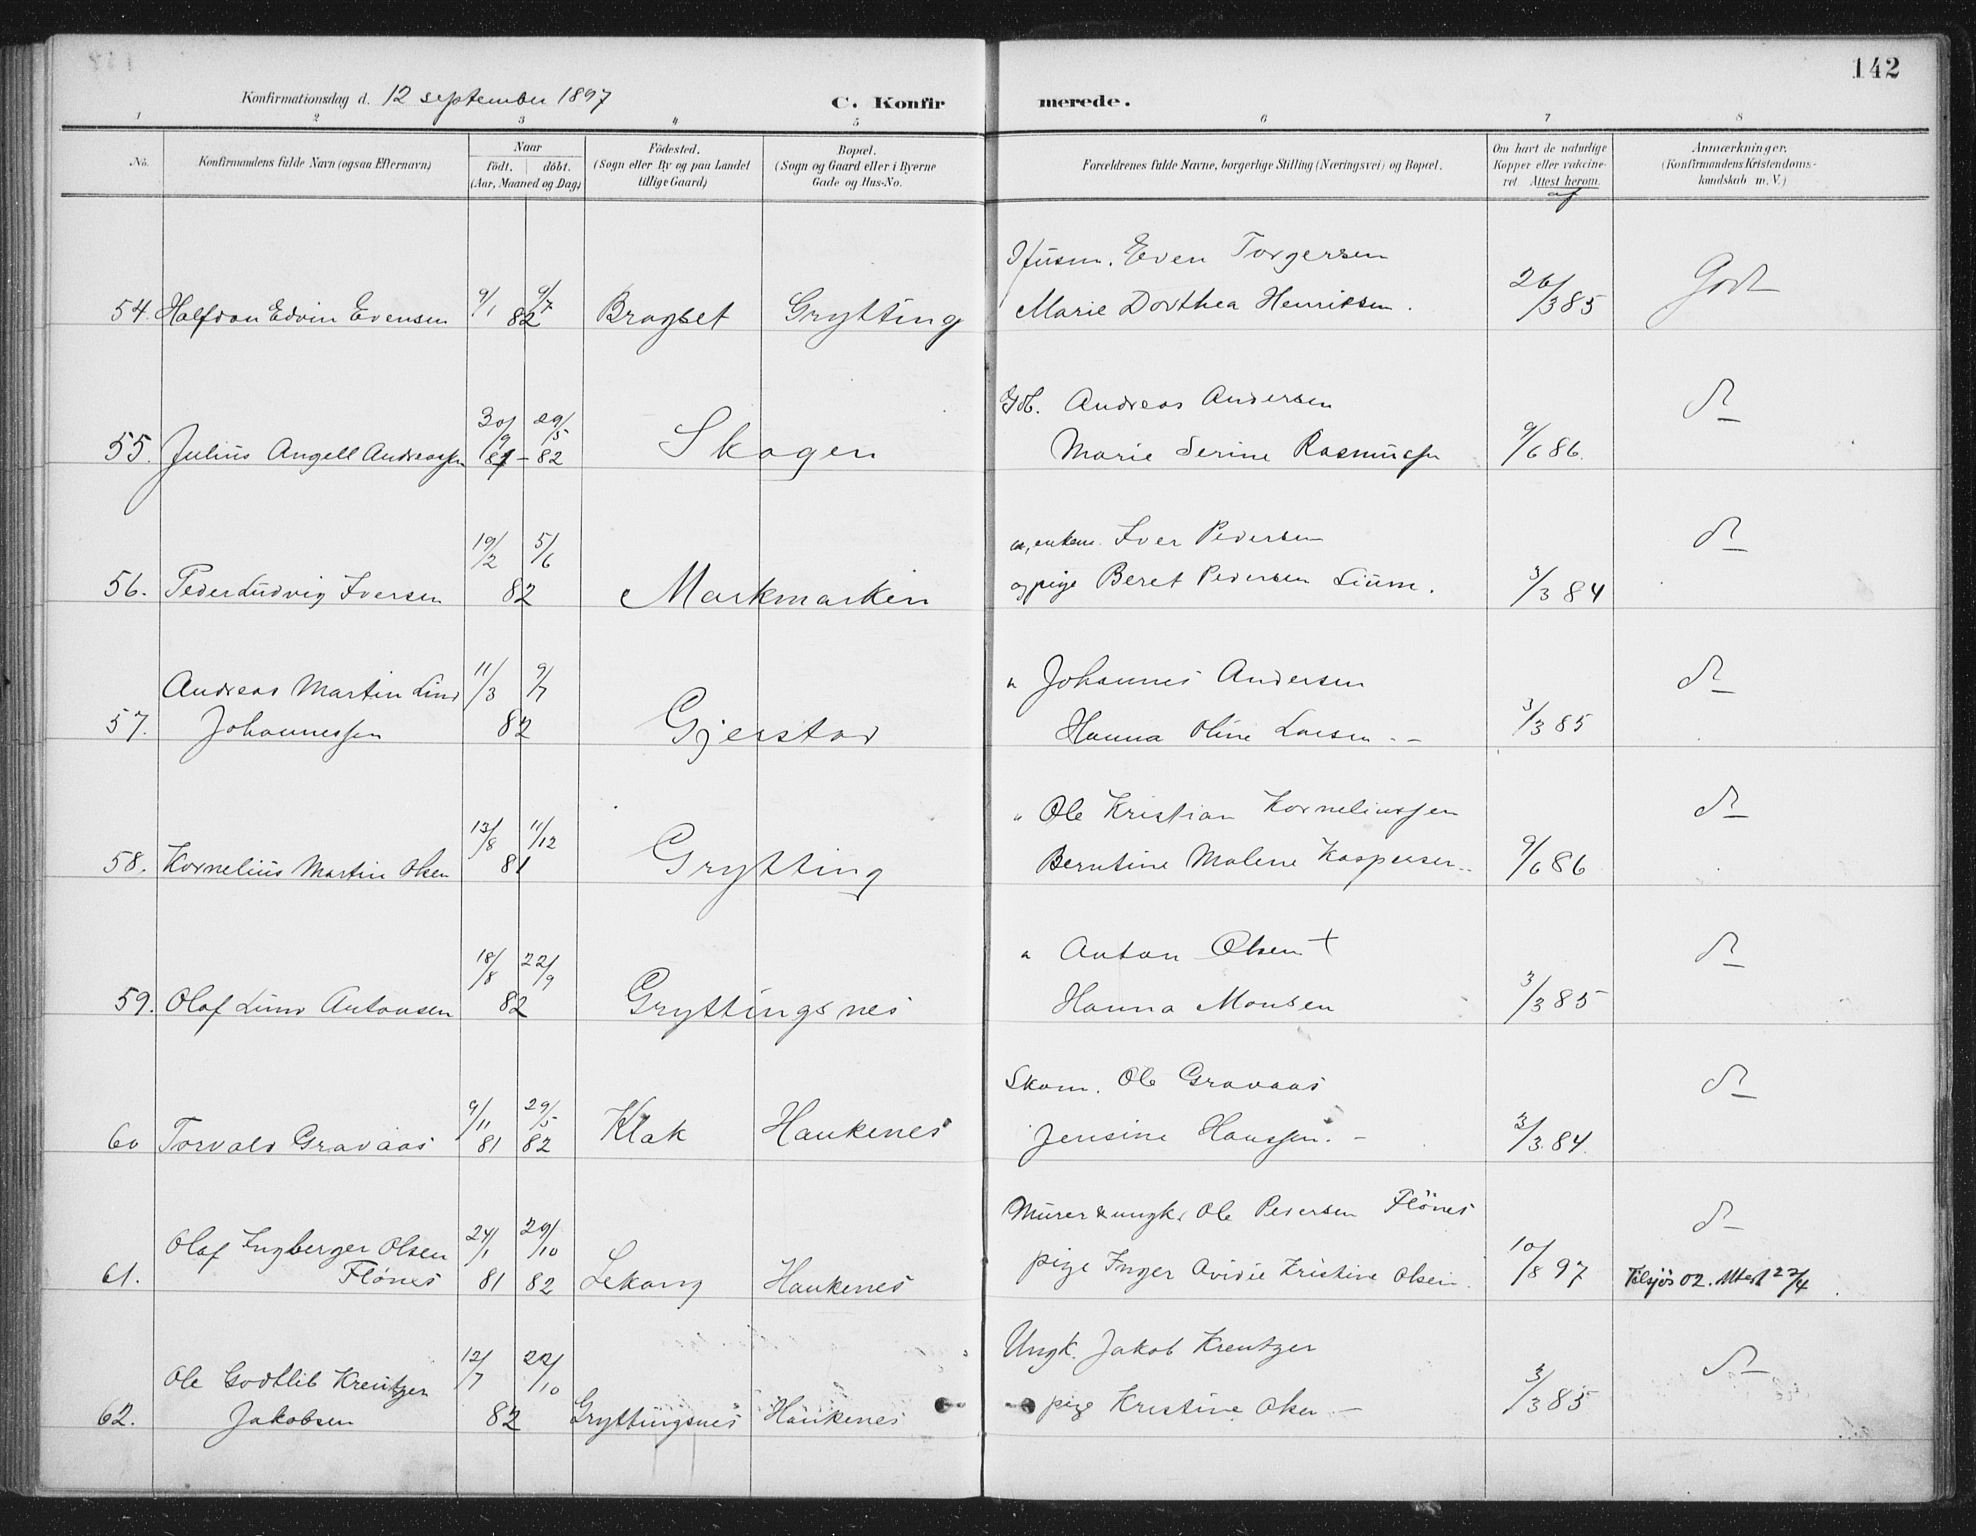 142
Konfirmationsdag d. 12 september 1897 C. Konfirmerede.
1 2 3 4 5 6 7 8
No. Konfirmandens fulde Navn (ogsaa Efternavn) Naar födt. döbt. (Aar, Maaned og Dag) Födested. (Sogn eller By og paa Landet tillige Gaard) Bopæl. (Sogn og Gaard eller i Byerne Gade og Hus-No. Forældrenes fulde Navne, borgerlige Stilling (Næringsvei) og Bopæl. Om havt de naturlige Kopper eller vakcineret Attest herom. af Anmærkninger. (Konfirmandens Kristendomskundskab m. V.)
Husm. Even Torgersen
54. Halfdan Edvin Evensen 9/1 9/7 82 Bragset Grytting Marie Dorthea Henriksen. 26/3 85 Godt
Gdb. Andreas Andersen
55. Julius Angell Andreassen 30/9 81 - 29/5 82 Skagen Marie Serine Rasmussen 9/6 86. do
enkem. Iver Pedersen
56. Peder Ludvig Iversen 19/2 5/6 82 Markmarken og pige Beret Pedersen Lium. 3/3 84 do
Andreas Martin Lind 11/3 9/7 " Johannes Andersen
57. Johannessen 82 Gjerstad Hanna Oline Larsen - 3/3 85 do
" Ole Kristian Korneliussen
58. Kornelius Martin Olsen 13/8 11/12 81 Grytting Berntine Malene Kaspersen 9/6 86 do
" Anton Olsen +
59. Olaf Lund Antonsen 18/8 22/9 82 Gryttingsnes Hanna Monsen 3/3 85 do
Skom. Ole Gravaas
60 Torvald Gravaas 9/11 81 29/5 82 Klak Haukenes Jensine Hanssen. - 3/3 84. do
Murer & ungk. Ole Pedersen Flönes
Olaf Ingberger Olsen 24/1 29/10
61. Flönes 81 82 Lekang Haukenes pige Inger Ovidie Kristine Olsen. 10/8 97 do
Ungk. Jakob Kreutzer
Ole Godtlib Kreutzer 12/7 22/10
62. Jakobsen 82 Gryttingsnes Haukenes pige Kristine Olsen - 3/3 85 do